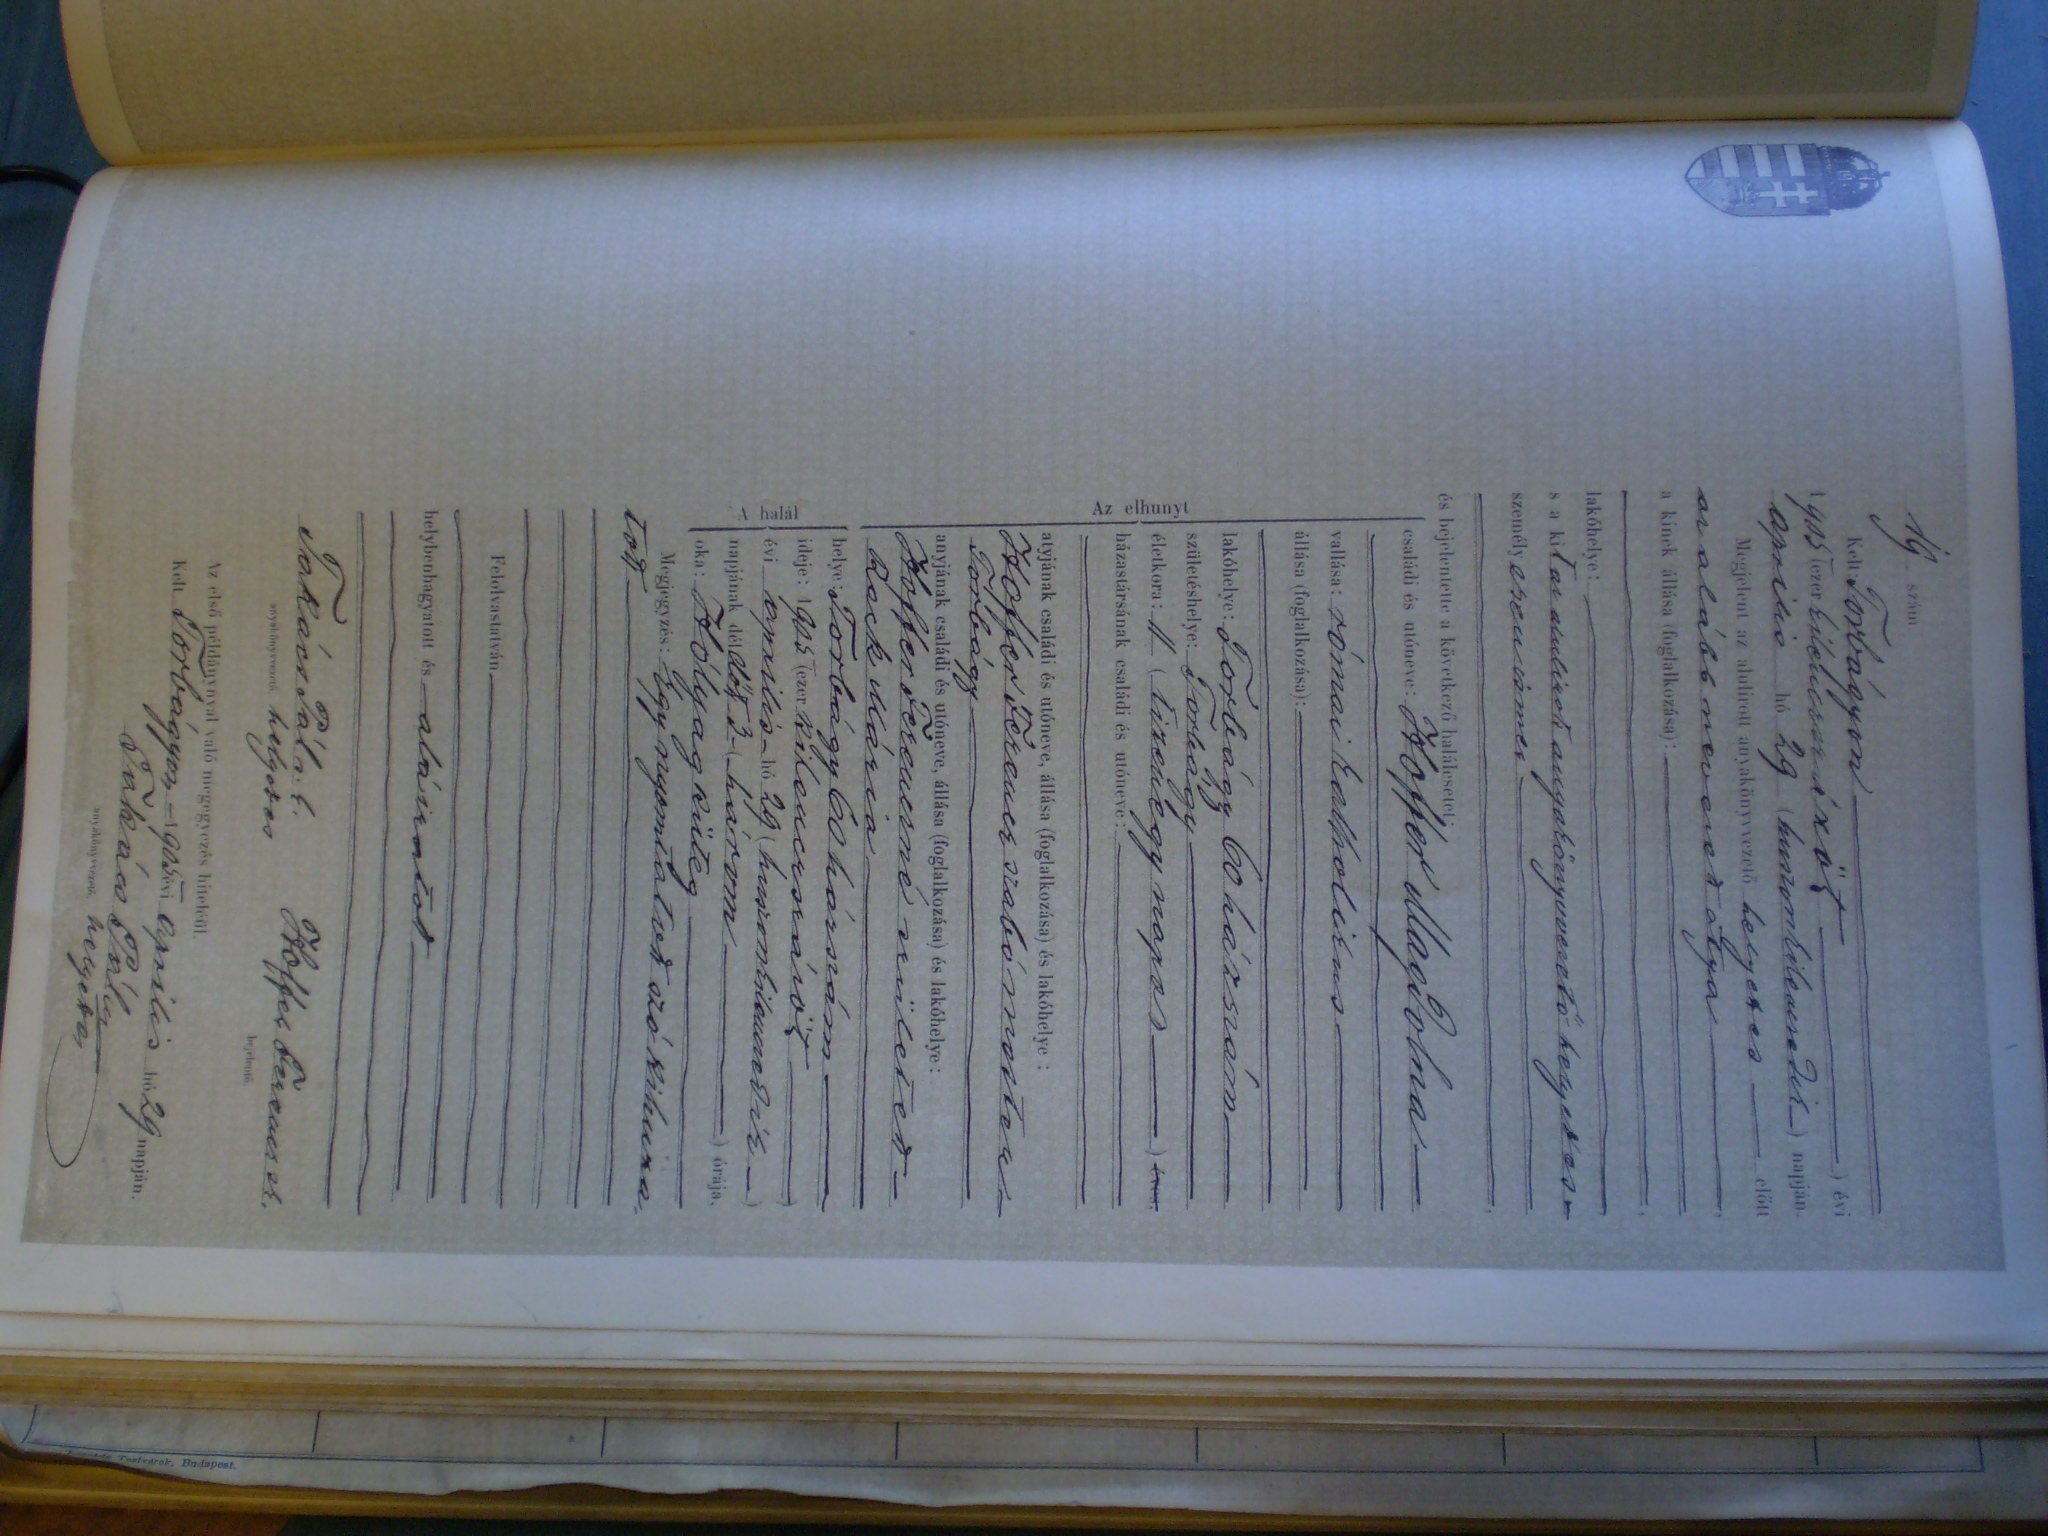 19 szám
Kelt Torbágyon
1905 (ezer kilencszázöt) évi
április hó 29 (huszonkilencedik) napján.
Megjelent az alulirott anyakönyvvezető helyettes előtt
az alább nevezett atyja,
a kinek állása (foglalkozása):
lakóhelye:
s a kit az aulirott anyakönyvvezető helyettes
személyesen ismer,
és bejelentette a következő halálesetet:
Az elhunyt
családi és utóneve: Hoffer Magdolna
vallása: római katholikus
állása (foglalkozása):
lakóhelye: Torbágy 60 házszám
születéshelye: Torbágy
életkora: 11 (tizenegy napos) éves,
házastársának családi és utóneve:
atyjának családi és utóneve, állása (foglalkozása) és lakóhelye:
Hoffer Ferencz szabó mester
Torbágy
anyjának családi és utóneve, állása (foglalkozása) és lakóhelye:
Hoffer Ferenczné született
Mária
A halál
helye: Torbágy 60 házszám
ideje: 1905 (ezer kilencszázöt)
évi április hó 29 (huszonkilencedik)
napjának délelőtt 3 (három) órája,
oka: Hólyag küteg
Megjegyzés: Egy nyomtatott szó kihuza-
tott
Felolvastatván,
helybenhagyatott és aláiratott
Takács Pál s. k. Hoffer Ferencz sk.
anyakönyvvezető. helyettes bejelentő.
Az első példánynyal való megegyezés hiteléül.
Kelt Torbágyon 1905 évi április hó 29 napján.
Takács Pál
anyakönyvvezető. helyettes
Testvérek, Budapest.